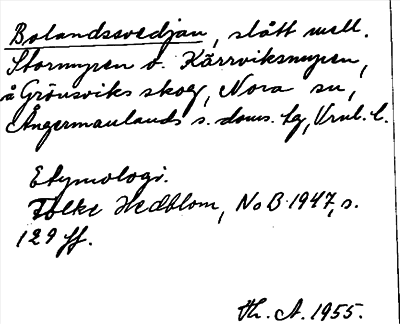 Bolandssvedjan, slått mell.
Stormyren o. Kärrviksmyren,
å Grönsviks skog, Nora sn,
Ångermanlands s. doms. tg, Vrnl. l.
Etymologi.
Folke Hedblom, NoB 1947, s.
129 ff.
Th. A. 1955.